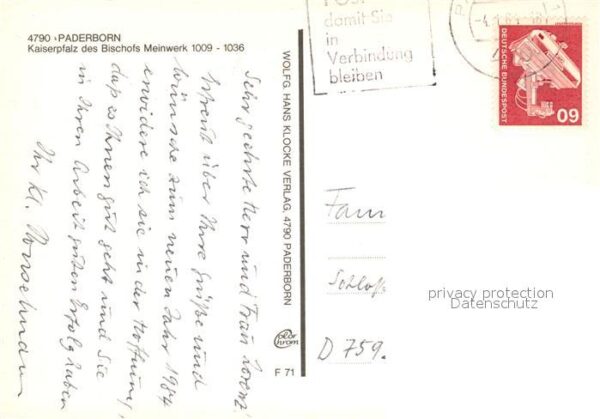 4790 · PADERBORN
Kaiserpfalz des Bischofs Meinwerk 1009 - 1036
Sehr geehrte Herr und Frau Lorenz!
Erfreut über Ihre Grüße und
Wünsche zum neuen Jahr 1984
erwidere ich sie in der Hoffnung,
daß es Ihnen gut geht und Sie
in Ihrer Arbeit guten Erfolg haben
Ihr Kl.
WOLFG. HANS KLOCKE VERLAG. 4790 PADERBORN
color
chrom
F 71
damit Sie
in
Verbindung
bleiben
DEUTSCHE BUNDESPOST
60
Fam
Schloß
D 759.
privacy protection
Datenschutz